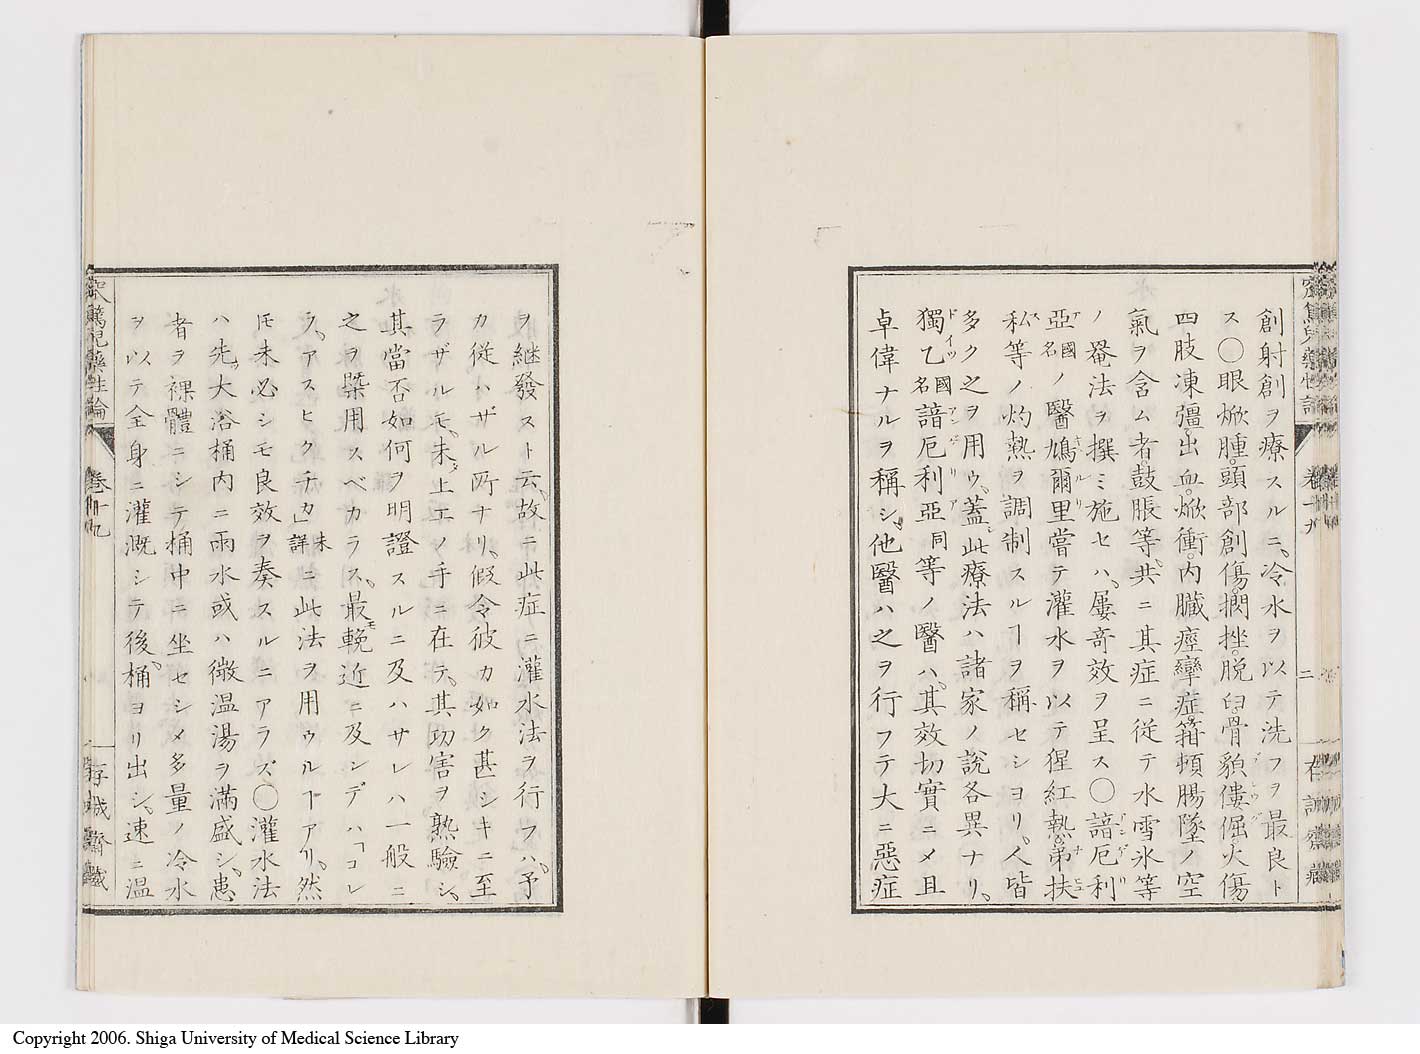 創射創ヲ療スルニ、冷水ヲ以テ洗フヲ最良ト
ス〇眼焮腫。頭部創傷。挫。脱臼。骨傷
四肢凍彊。出血。焮衝。内臓痙攣症。箝頓腸墜ノ空
氣ヲ含ム者。鼓脹等、共ニ其症ニ従テ水雪氷等
ノ罨法ヲ撰ミ施セハ、屢竒效ヲ呈ス〇諳厄利
亞國名ノ醫鳩爾里嘗テ灌水ヲ以テ猩紅熱。弟扶
私等ノ灼熱ヲ調制スルヿヲ稱セシヨリ、人皆
多ク之ヲ用ウ、蓋此療法ハ諸家ノ説各異ナリ、
獨乙國名諳厄利亞同等ノ醫ハ、其效切實ニメ且
卓偉ナルヲ稱シ、他醫ハ之ヲ行フテ大ニ惡症
卷十九
二
ヲ継發スト云、故ニ此症ニ灌水法ヲ行フハ、予
カ従ハザル所ナリ、假令彼カ如ク甚シキニ至
ラザルモ、未上エノ手ニ在テ、其功害ヲ熟驗シ、
其當否如何ヲ明證スルニ及ハサレハ一般ニ
之ヲ槩用スベカラス、最輓近ニ及シデハ「コレ
ラ、アスヒクチカ」未詳ニ此法ヲ用ウルヿアリ、然
モ未必シモ良效ヲ奏スルニアラズ〇灌水法
ハ先大浴桶内ニ雨水或ハ微温湯ヲ滿盛シ、患
者ヲ裸體ニシテ桶中ニ坐セシメ多量ノ冷水
ヲ以テ全身ニ灌漑シテ後、桶ヨリ出シ、速ニ温
篤兒藥性論
卷十九
Copyright 2006. Shiga University of Medical Science Library